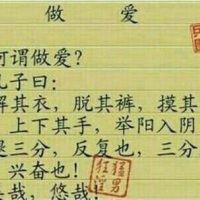 做 爱
何谓做爱？
孔子曰：
解其衣，脱其裤，摸其
上下其手，举阳入阴
是三分，反复也，三分
兴奋也！
哉，悠哉，